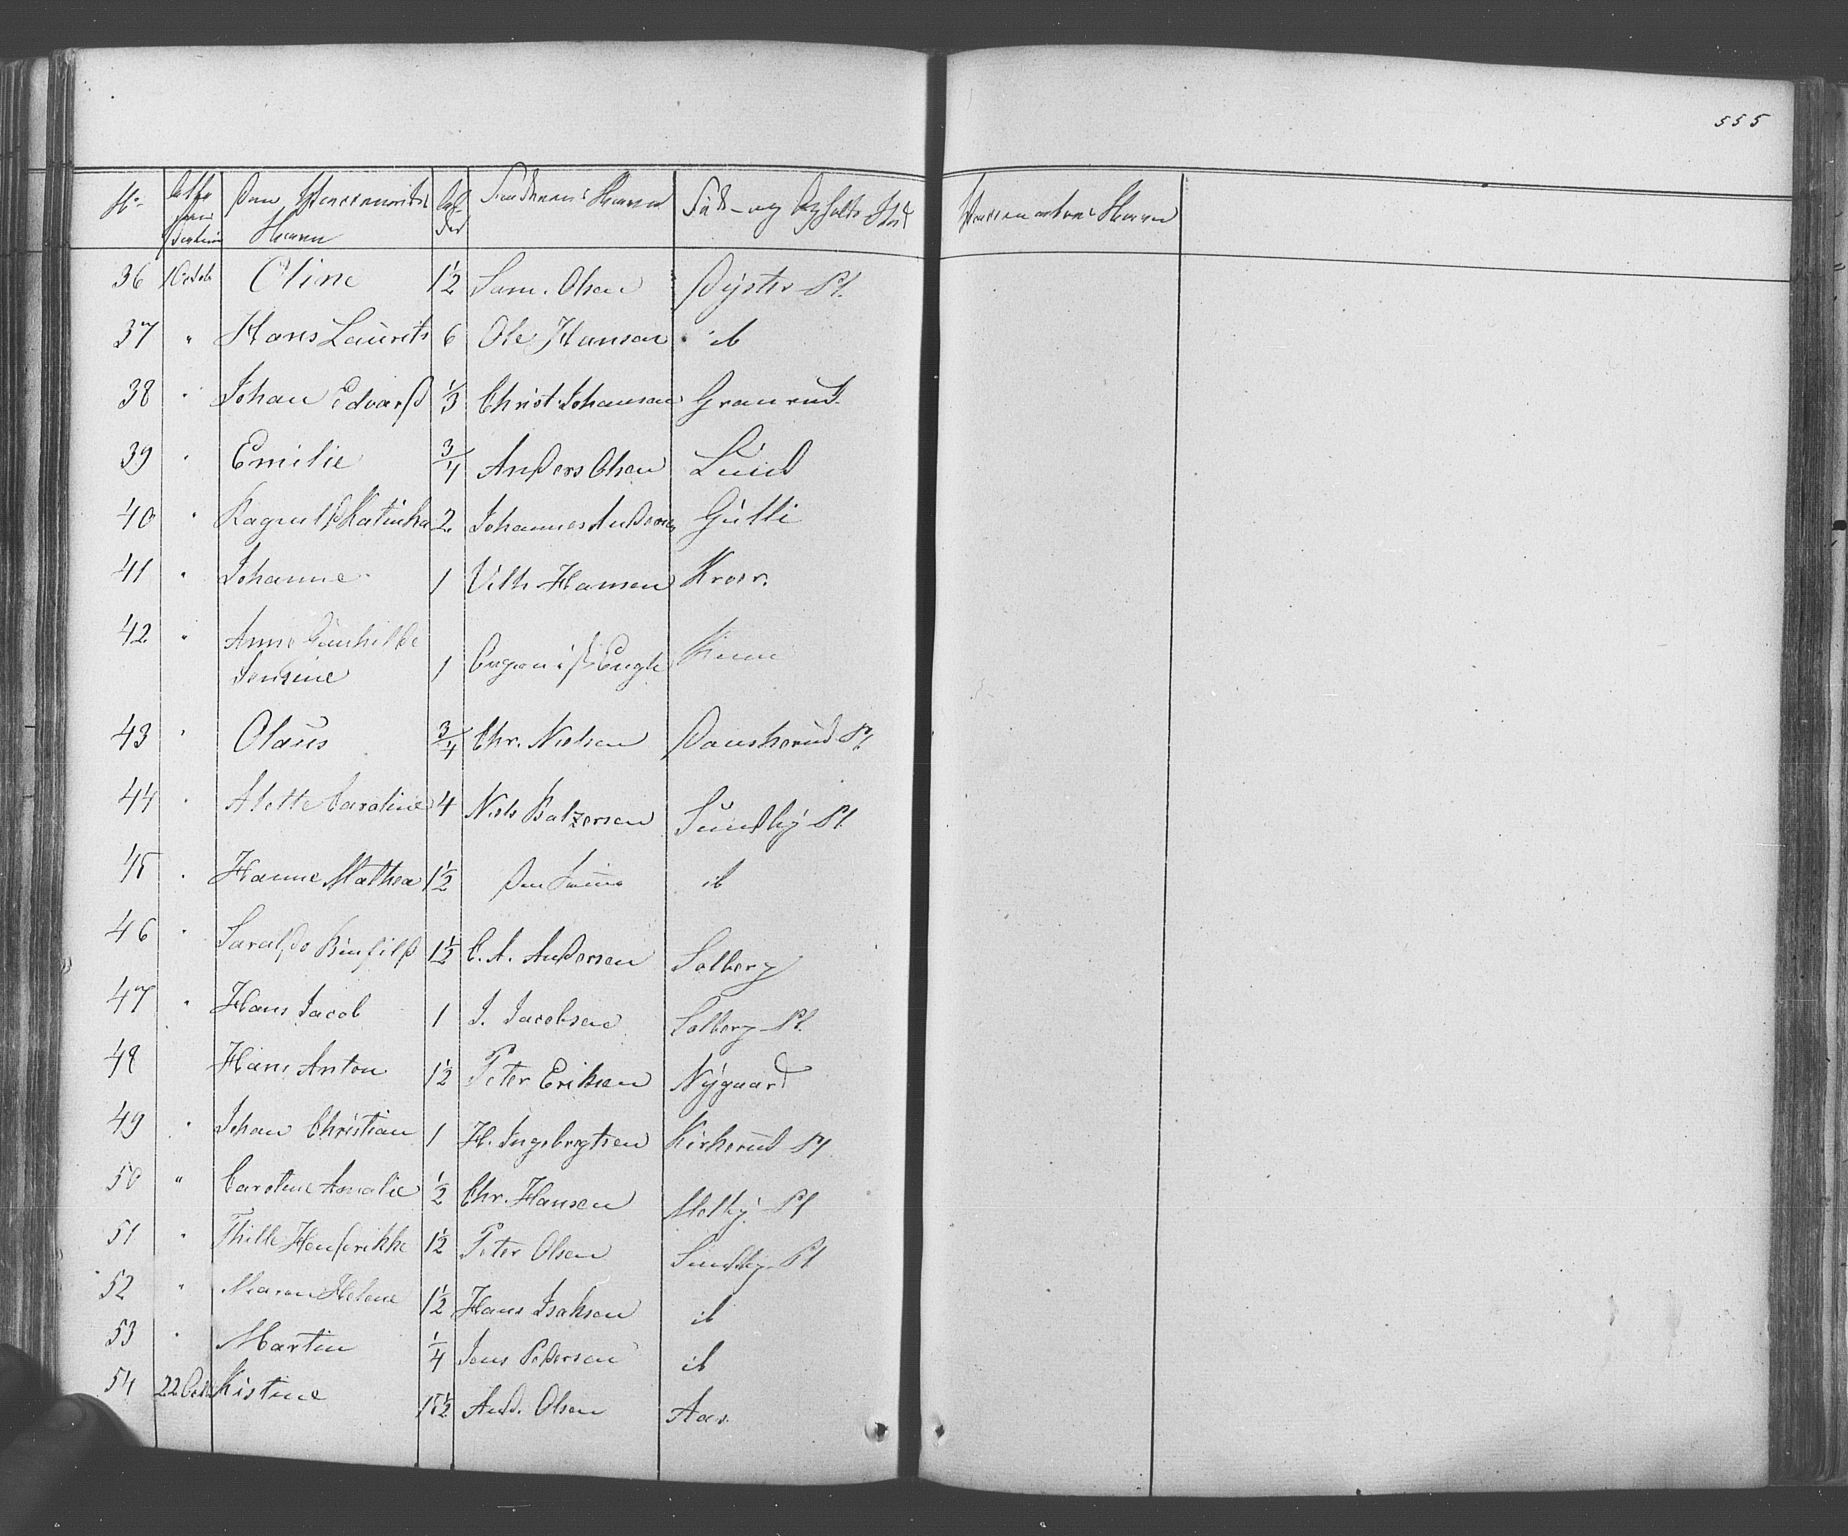 555
No Den Vaccineredes Navn Alder Faderens Navn Føde- og Opholds Sted Vaccinateurens Navn
36 1 Octob Oline 1½ Sam. Olsen Dyster Pl.
37 " Hans Laurits 6 Ole Hansen ib
38 " Johan Edvard ⅓ Christ. Johansen Granrud
39 " Emilie ¾ Anders Olsen Lund
40 " Ragnild Katinka 2 Johannes Andersen
41 " Johanne 1 Vilh Hansen Kroer.
42 " Anne Gunhilde
Jensine 1
43 " Olaus ¾ Chr. Nielsen Danskerud Pl
44 " Alette Caroline 4 Niels Balzersen Sundby Pl.
45 " Hanne Mathea 1½ Den Samme ib
46 " 1½ C. A. Andersen Solberg
47 " Hans Jacob 1 J. Jacobsen Solberg Pl.
48 Hans Anton 1½ Peter Eriksen Nygaard
49 " Johan Christian 1 H. Ingebregtsen Kirkerud Pl
50 " Caroline Amalie ½ Chr. Hansen Melby Pl
51 " Thille Hendrikke 1½ Peter Olsen Sundby Pl
52 " Maren Helene 1½ Hans Isaksen ib
53 " Martin ¼ Jens Pedersen ib
54 22 Oct Kistine And. Olsen Aas.